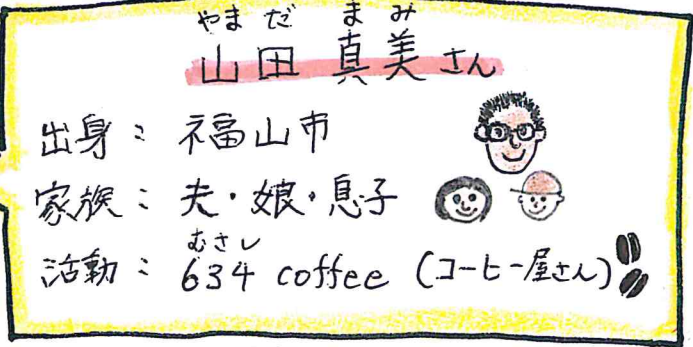 やまだ まみ
山田 真美さん
出身：福山市
家族：夫・娘・息子
むさし
活動：634 coffee (コーヒー屋さん)